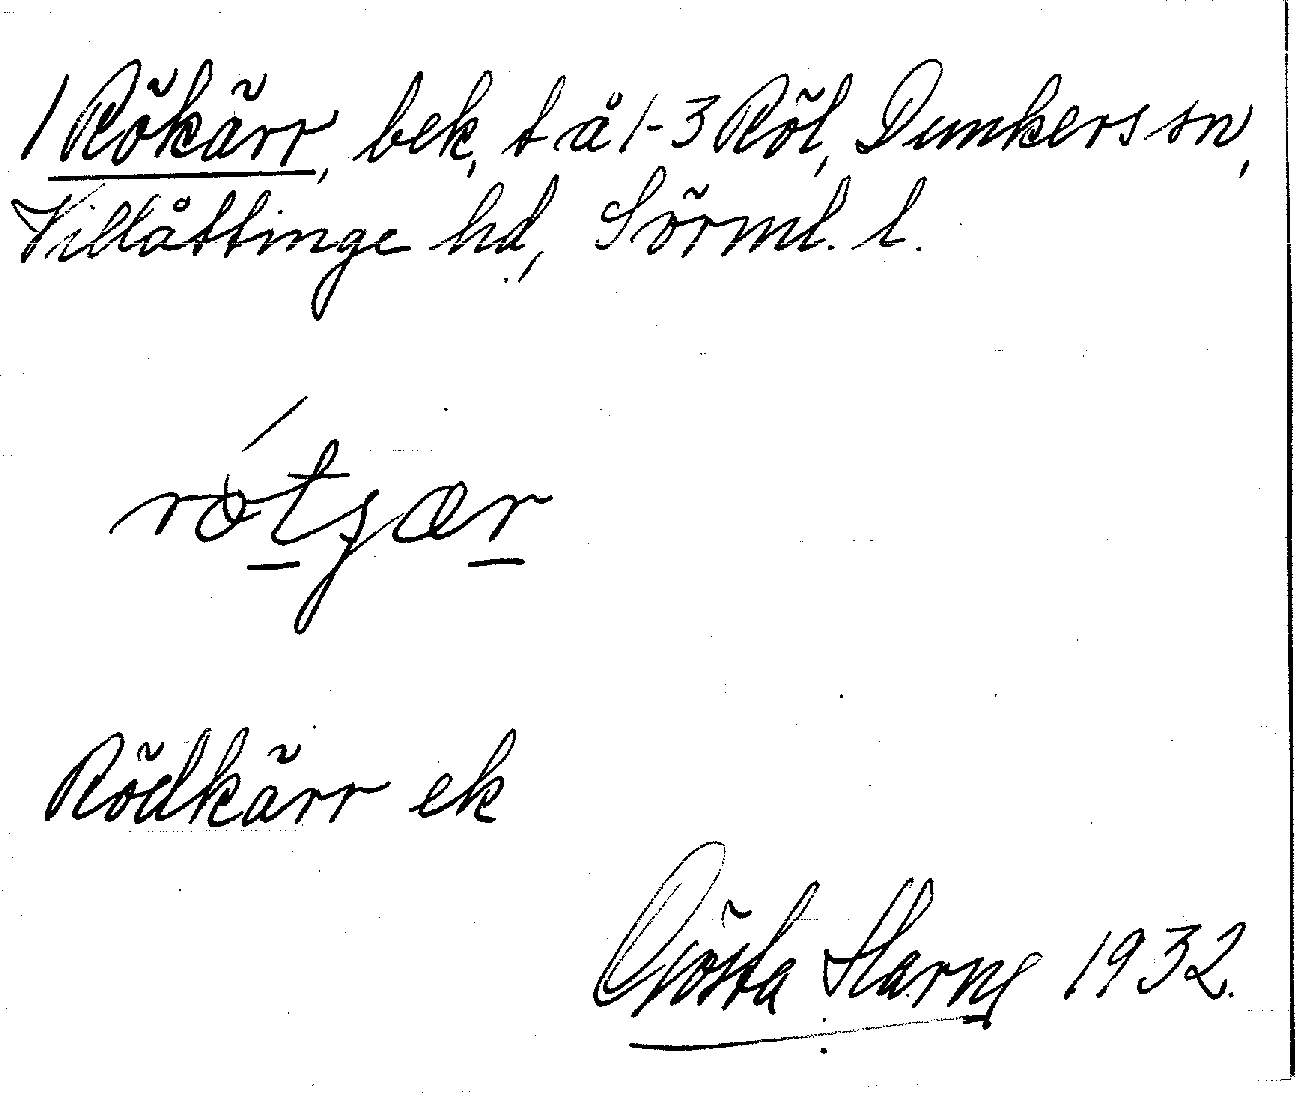 1 Rökärr, bek, t å 1-3 Röl, Dunkers sn,
Villåttinge hd, Sörml. l.
rötʒær
Rödkärr ek
Gösta Harng 1932.